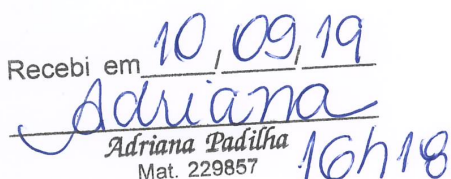 Recebi em 10, 09, 19
Adriana
Adriana Padilha
Mat. 229857
16h18